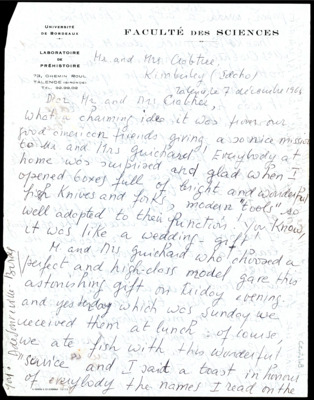 UNIVERSITÉ
DE BORDEAUX
FACULTÉ DES SCIENCES
LABORATOIRE
DE
PRÉHISTOIRE
TALENCE
Mr. and Mrs. Crabtree
Kimberley (Idaho)
Talence, 7 décembre 1964
Dear Mr and Mrs Crabtree,
What a charming idea it was from our
good american friends giving a service
to us and Mrs Guichard! Everybody at
home was surprised and glad when I
opened boxes full of bright and wonderful
fish knives and forks, modern "tools" so
well adapted to their function. You know,
it was like a wedding-gift!
M and Mrs Guichard who choosed a
perfect and high-class model gave this
astonishing gift on Friday evening.
and yesterday which was sunday we
received them at lunch: of course,
we ate fish with this wonderful
"service" and I sant a toast in honour
of everybody the names I read on the